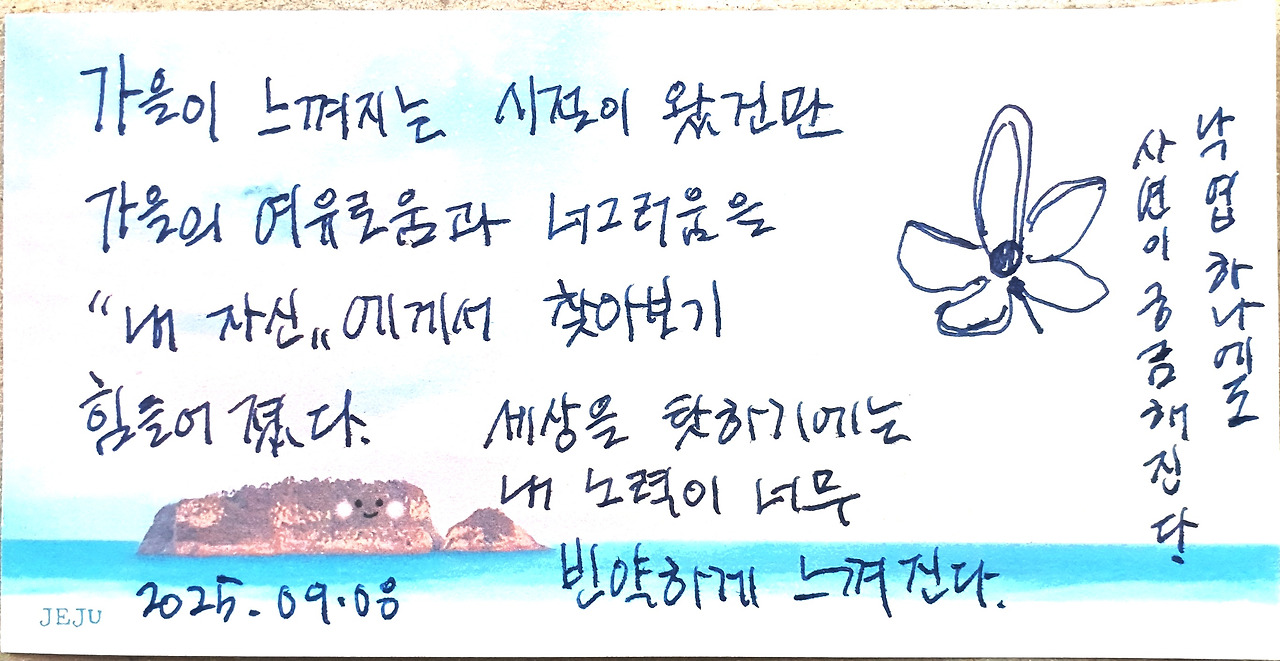 가을이 느껴지는 시점이 왔건만
가을의 여유로움과 너그러움을
“내 자신„에게서 찾아보기
힘들어 졌다.
세상을 탓하기에는
내 노력이 너무
빈약하게 느껴진다.
낙엽 하나에도
사연이 궁금해진다.
2025.09.08
JEJU